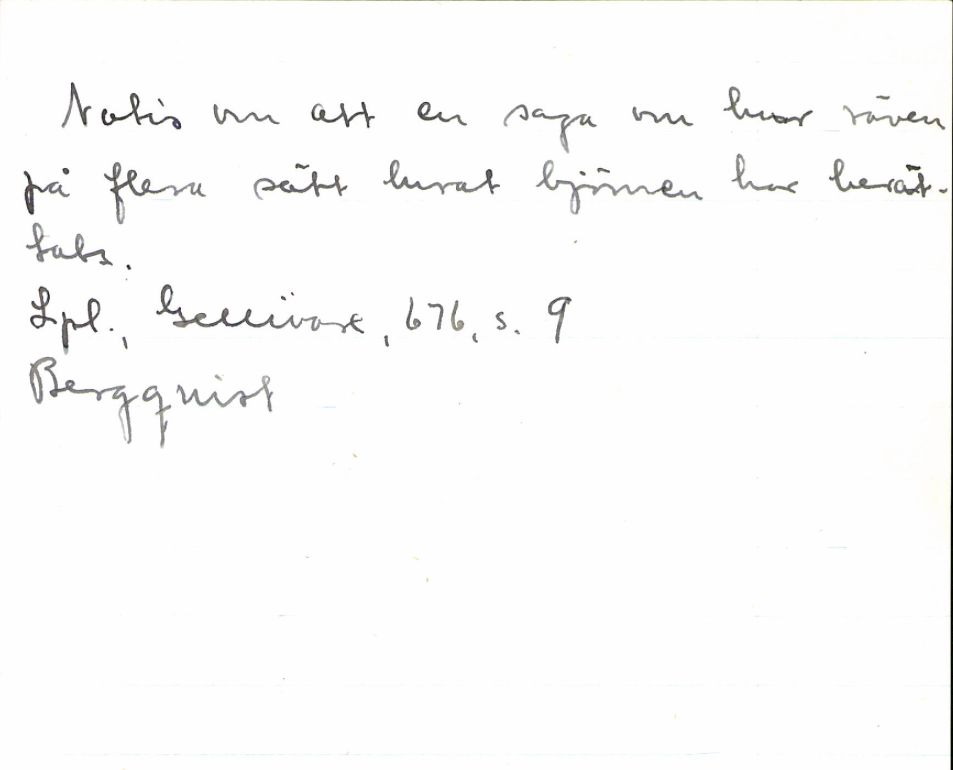 Notis om att en saga om hur räven
på flera sätt lurat björnen har berät-
tats.
Lpl., Gellivare, 676, s. 9
Bergqvist